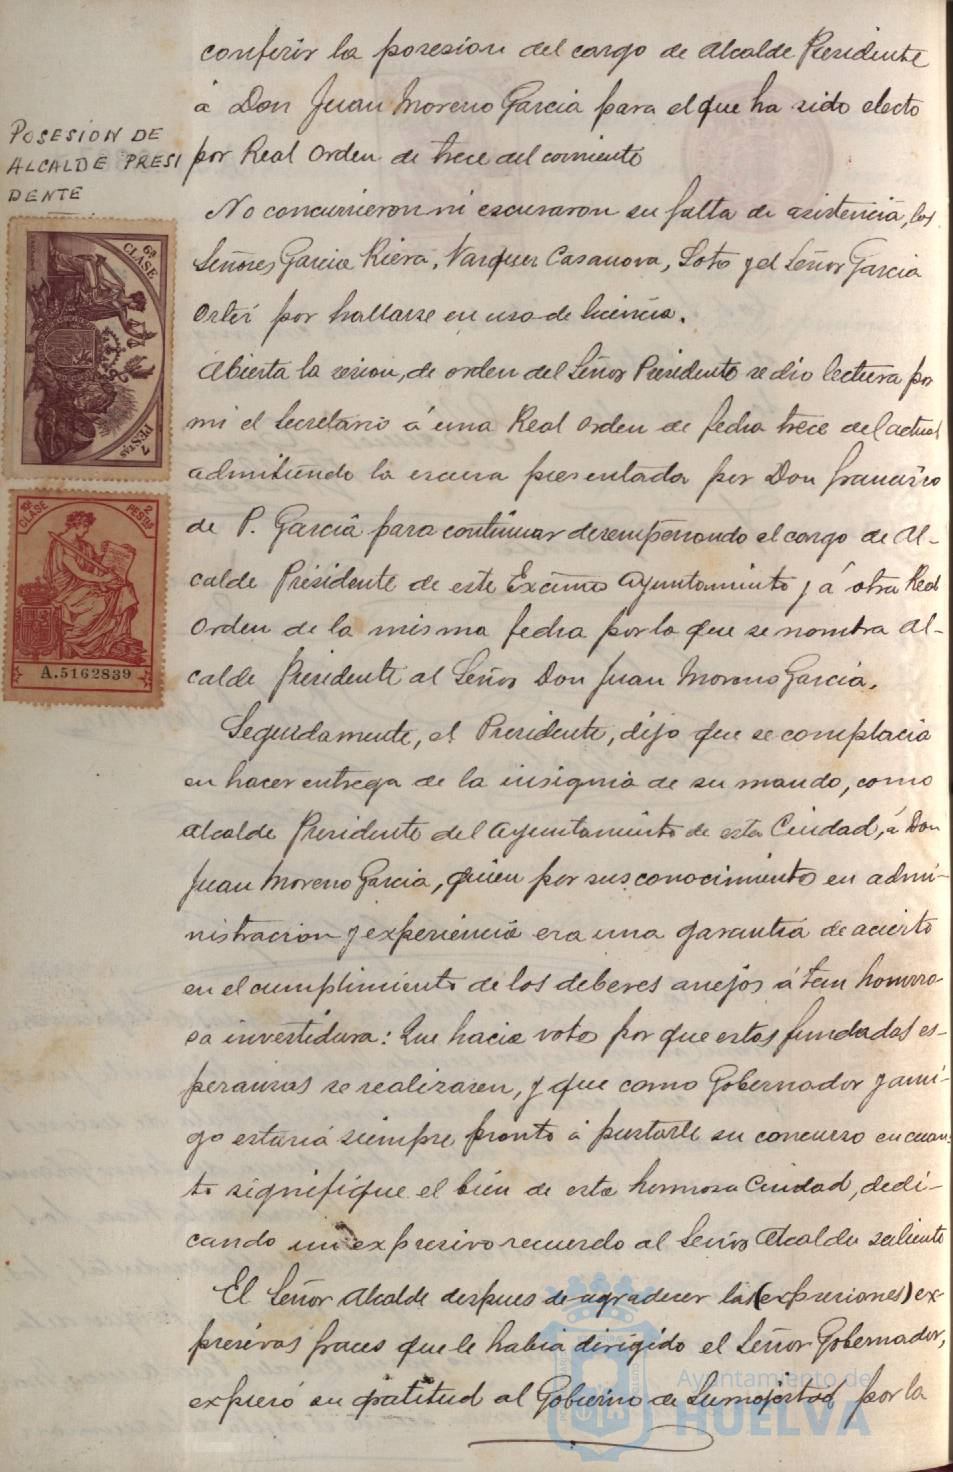 conferir la posesion del cargo de Alcalde Presidente
á Don Juan Moreno Garcia para el que ha sido electo
por Real Orden de trece del corriente
POSESION DE
ALCALDE PRESI
DENTE
No concurrieron ni escusaron su falta de asistencia, los
Señores Garcia Riera, Vazquez Casanova, Soto y el Señor Garcia
por hallarse en uso de licencia.
Abierta la sesion, de orden del Señor Presidente se dio lectura por
mi el Secretario á una Real Orden de fecha trece del actual
admitiendo la escusa presentada por Don francisco
de P. Garcia para continuar desempeñando el cargo de Al-
calde Presidente de este Excmo Ayuntamiento y á otra Real
Orden de la misma fecha por la que se nombra Al-
calde Presidente al Señor Don Juan Moreno Garcia.
Seguidamente, el Presidente, dijo que se complacia
en hacer entrega de la insignia de su mando, como
Alcalde Presidente del Ayuntamiento de esta Ciudad, á Don
Juan Moreno Garcia, quien por sus conocimiento en admi-
nistracion y experiencia era una garantia de acierto
en el cumplimiento de los deberes anejos á tan honro-
sa investidura: Que hacia votos por que estas fundadas es-
peranzas se realizasen, y que como Gobernador y ami-
go estaria siempre pronto á prestarle su concurso en cuan-
to signifique el bien de esta hermosa Ciudad, dedi-
cando un expresivo recuerdo al Señor Alcalde saliente
El Señor Alcalde despues de agradecer las (expresiones) ex-
presivas frases que le habia dirigido el Señor Gobernador,
expresó su gratitud al Gobierno de Su majestad por la
6ª CLASE
7 PESTAS
10ª CLASE
2 PESTAS
A.5162839
Ayuntamiento de
HUELVA